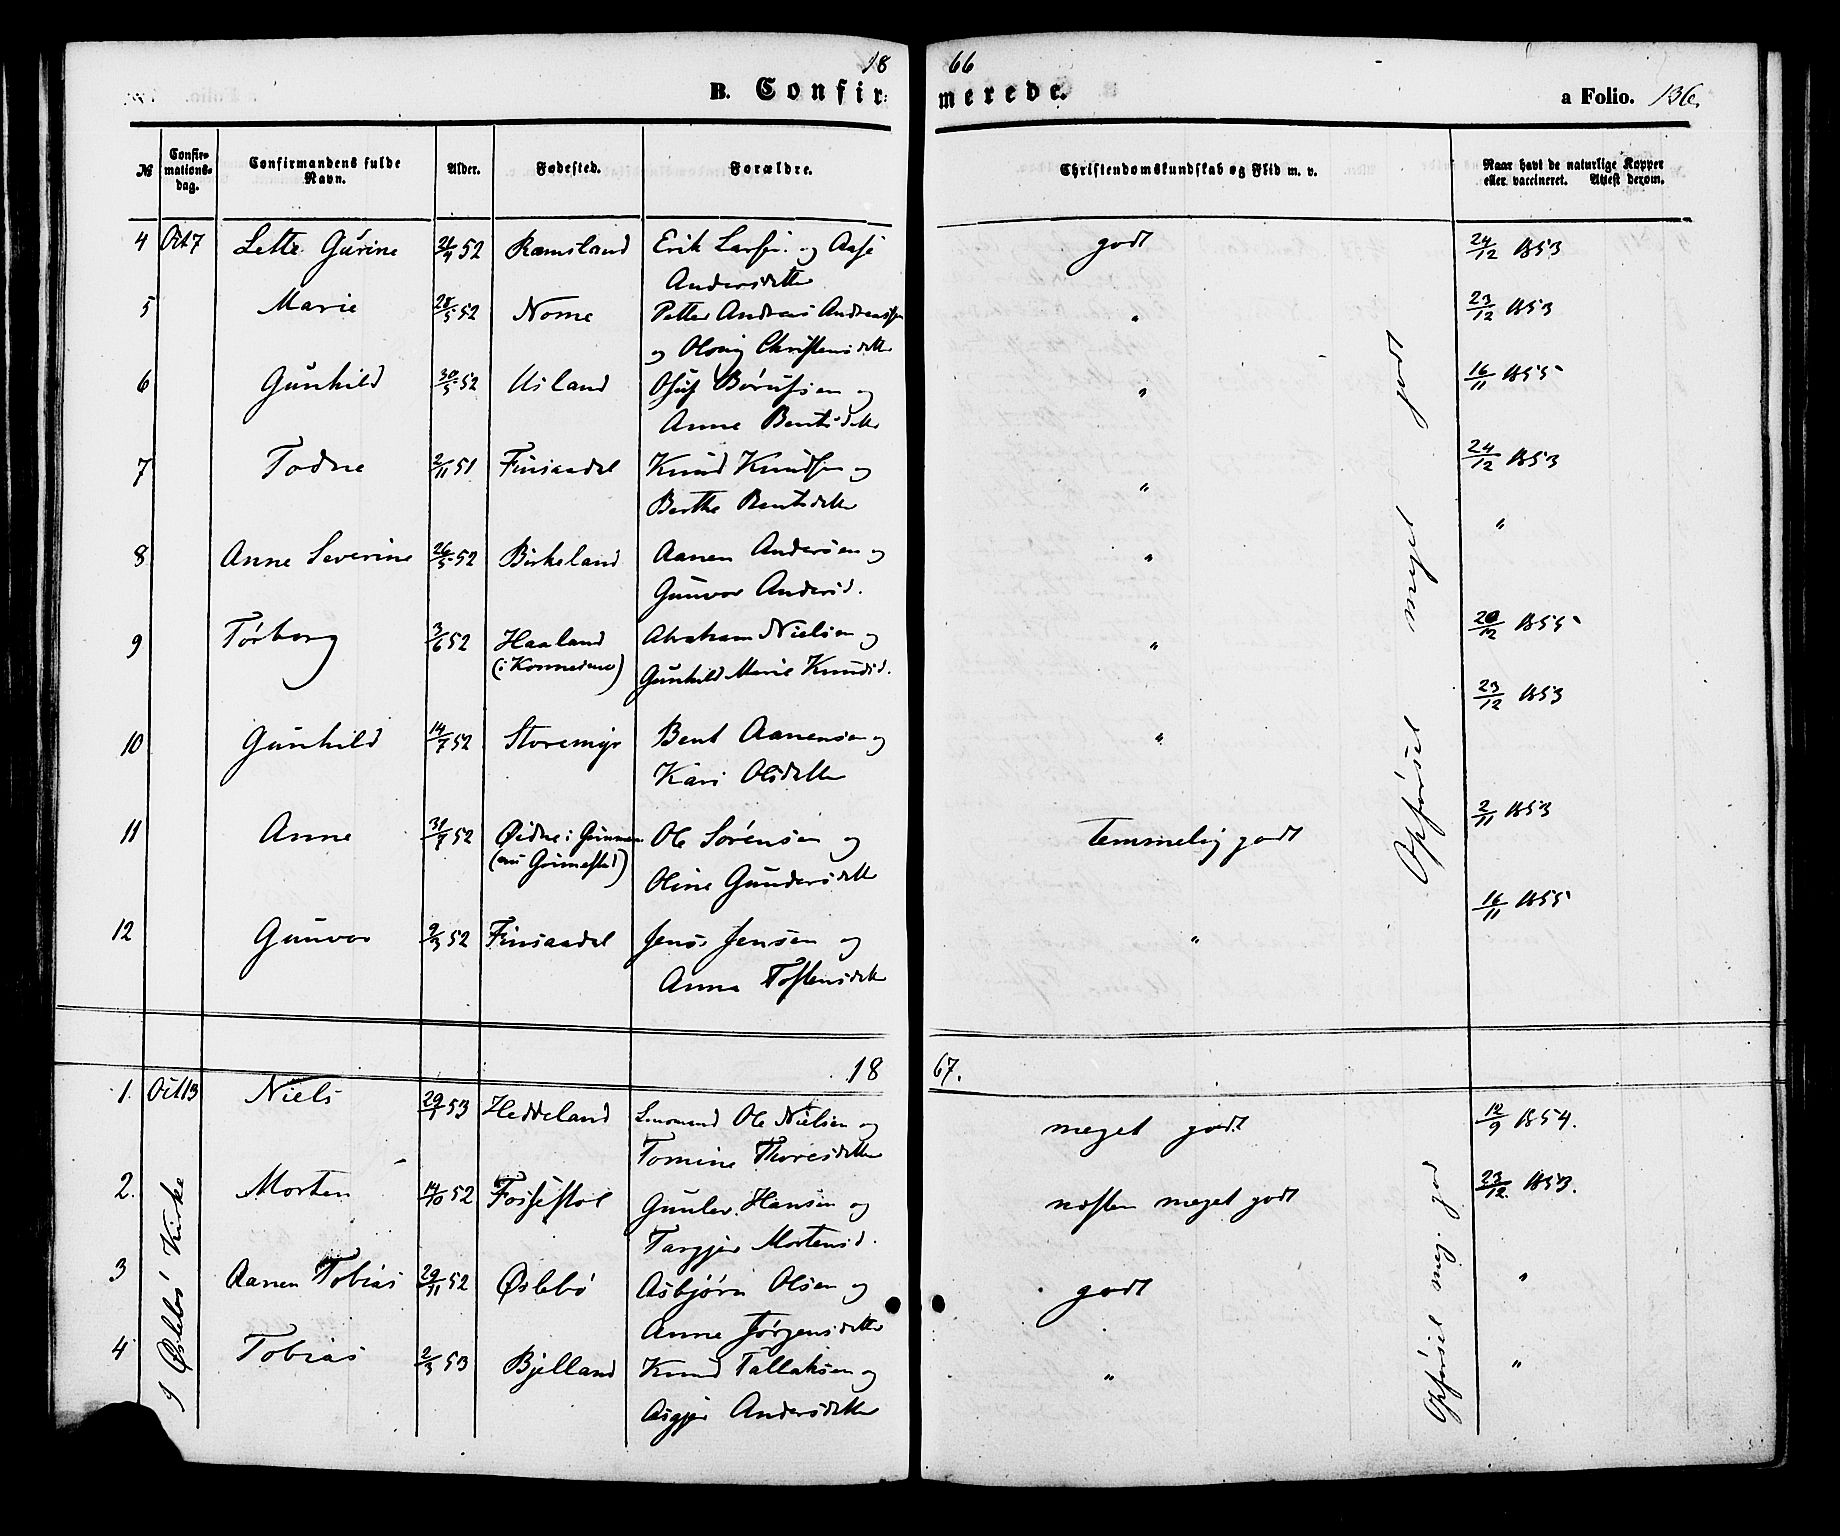 18 66
B. Confirmerede. a Folio. 136.
№ Confirmations-dag. Confirmandens fulde Navn. Alder. Fødested. Forældre. Christendomskundskab og Flid m. v. Naar havt de naturlige Kopper eller vaccineret. Attest derom.
4 Oct 7 Lette Gurine 21/4 52 Ramsland Erik Larsen og Aase godt 24/12 1853
Andersdatter
5 Marie 28/5 52 Nome Petter Andreas Andreassen " 23/12 1853
og Christensdatter
6 Gunhild 30/5 52 Usland Børufsen og " 16/11 1855
Anne Bentsdatter
7 Todne 2/11 51 Finsaadal Knud Knudsen og " 24/12 1853
Berthe Bentsdatter
8 Anne Severine 26/5 52 Birkeland Aanen Andersen og " "
Gunvor Andersd.
9 Tørborg 3/6 52 Haaland Abraham Nielsen og " 20/12 1855
(i Konnesmo) Gunhild Marie Knudsd.
23/12 1853
10 Gunhild 14/7 52 Storemyr Bent Aanensen og "
Kari Olsdatter
11 Anne 31/7 52 Øidne i Ole Sørensen og temmelig godt 2/11 1853
Oline Gundersdatter
12 Gunvor 9/3 52 Finsaadal Jens Jensen og " 16/11 1855
Anna Tostensdatter
Opførsel meget godt
18 67.
1. Oct 13 Niels 29/1 53 Heddeland Ole Nielsen og meget godt 12/9 1854.
Tomine Thoresdatter
2. Morten 14/10 52 Fossestøl Gunlev Hansen og næsten meget godt 23/12 1853.
Targjer Mortensd.
3 Aanen Tobias 29/11 52 Øslebø Asbjørn Olsen og godt "
Anne Jørgensdatter
4 Tobias 2/3 53 Bjelland Knud Tallaksen og " "
Asgjer Andersdatter
I Øslebø Kirke
Opførsel meg. god